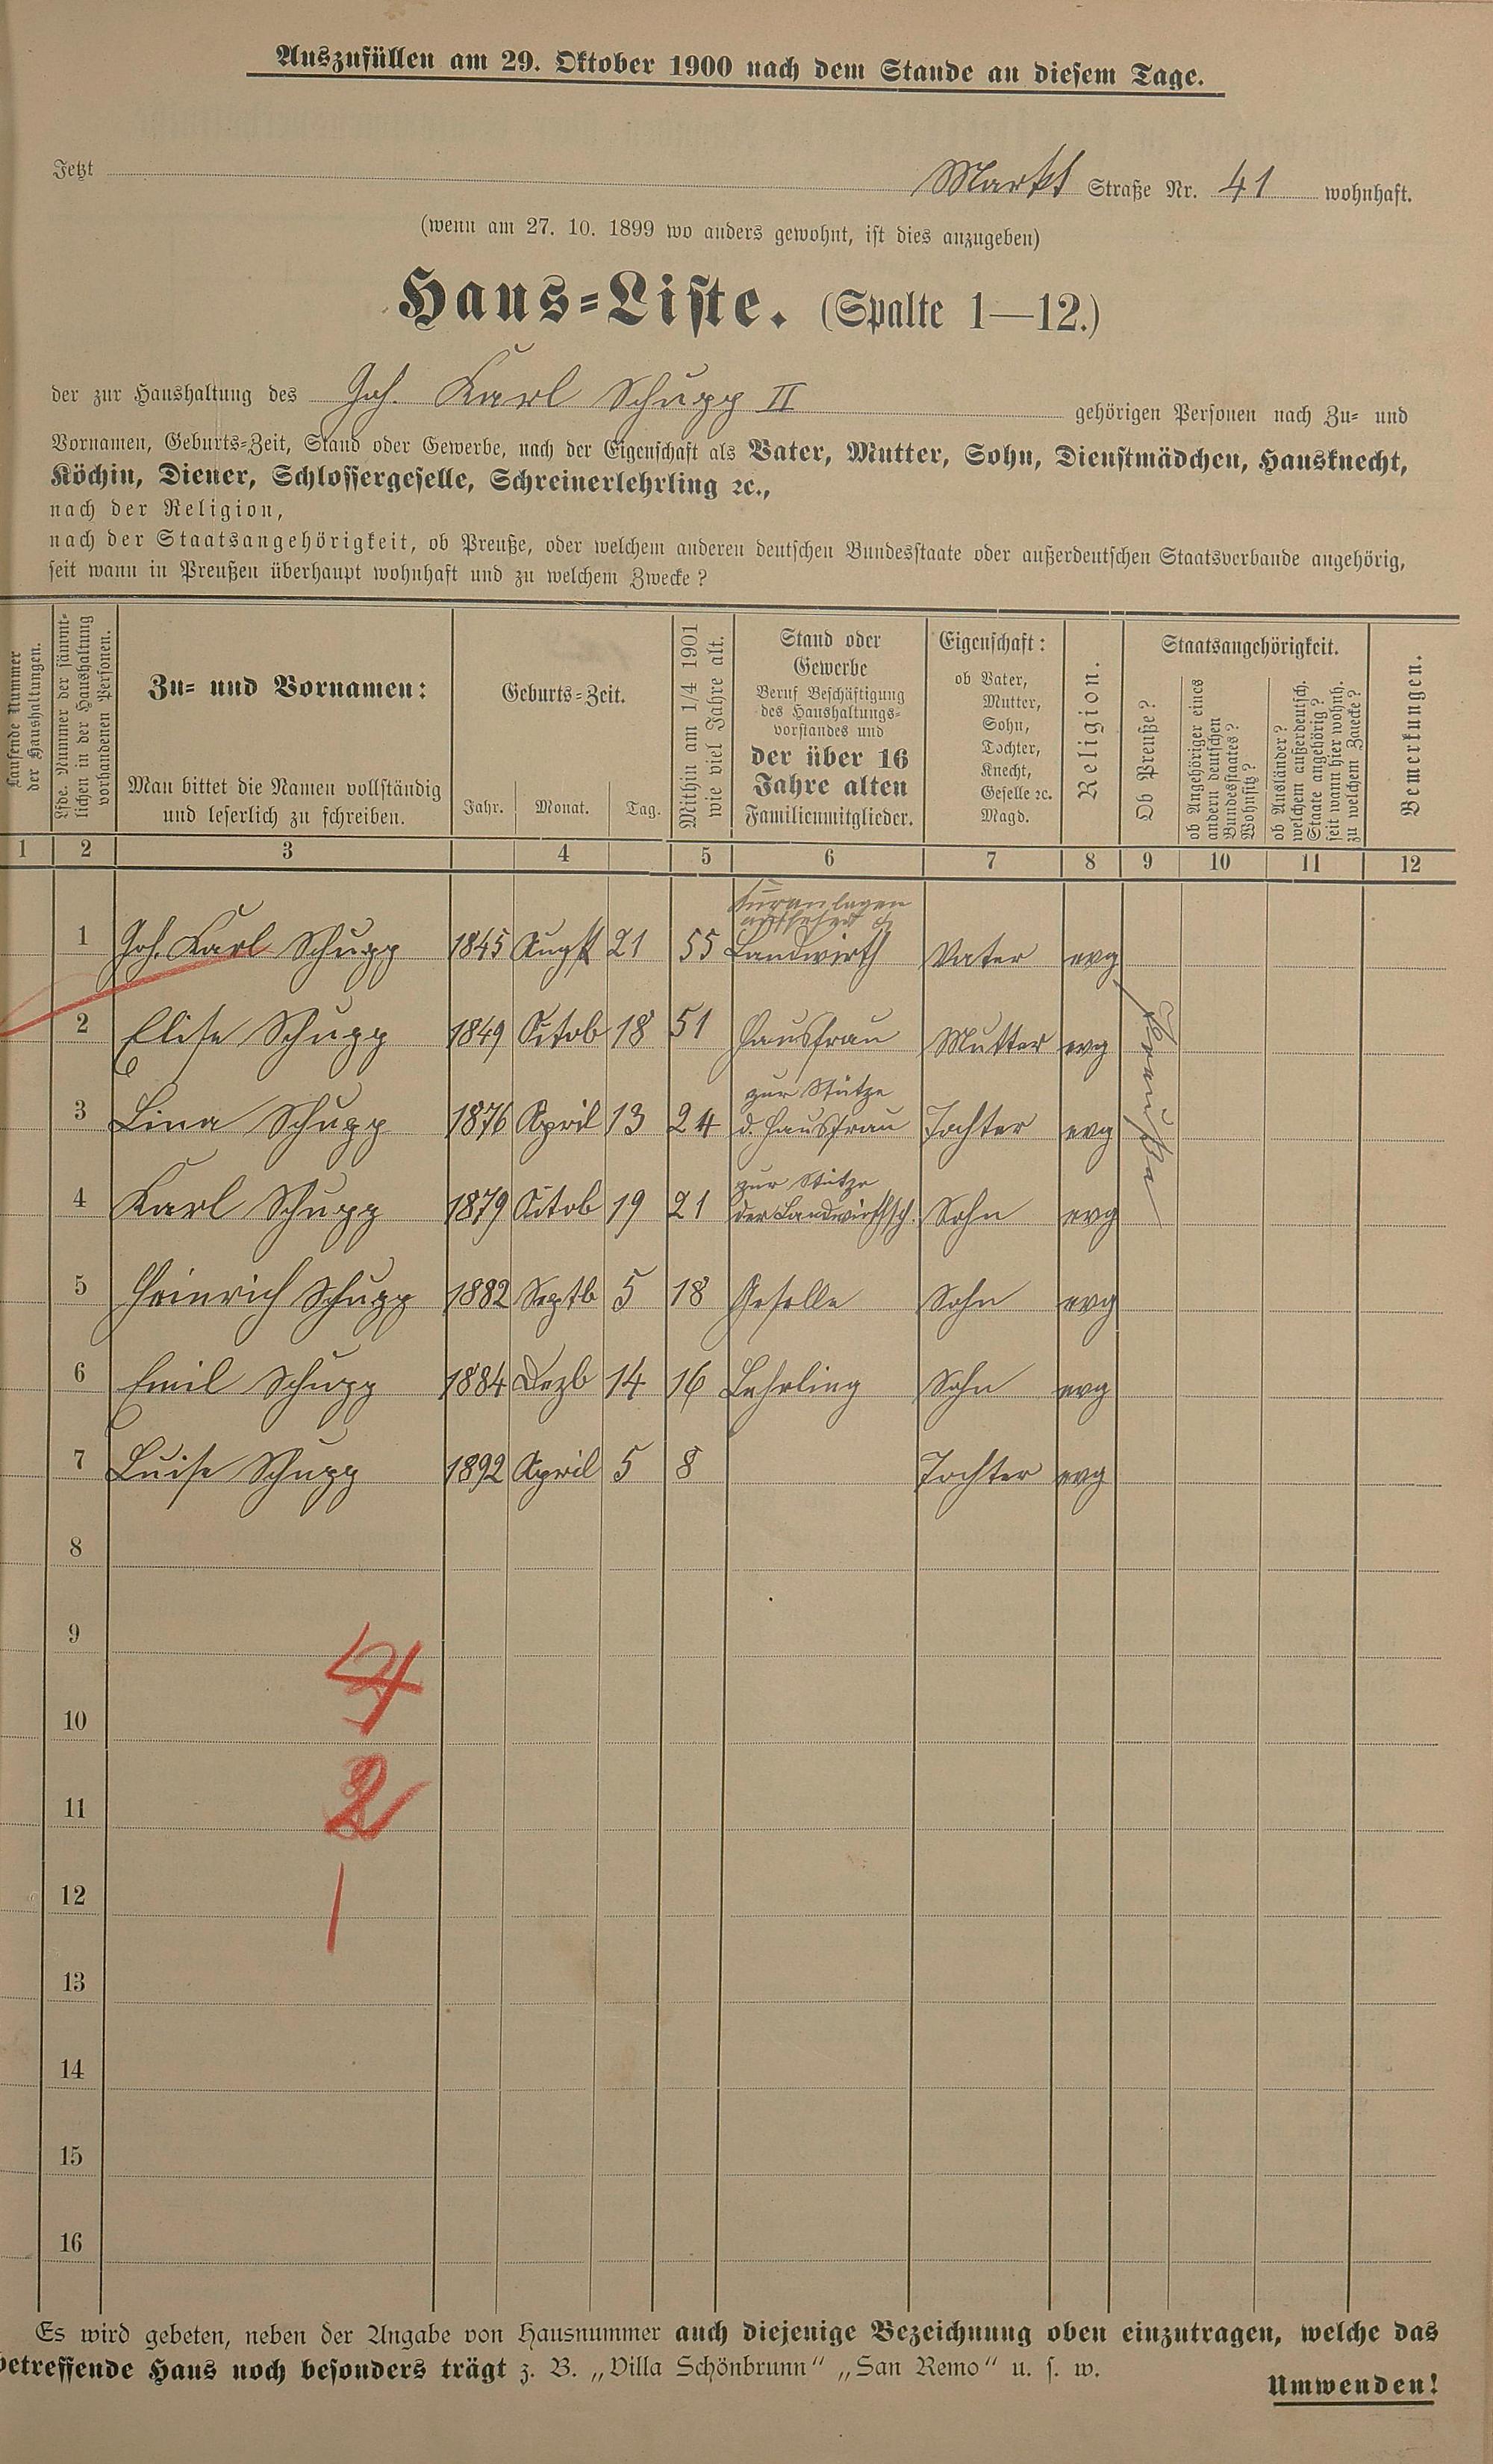 Auszufüllen am 29. Oktober 1900 nach dem Stande an diesem Tage.
Jetzt Markt Straße Nr. 41 wohnhaft.
(wenn am 27. 10. 1899 wo anders gewohnt, ist dies anzugeben)
Haus-Liste. (Spalte 1—12.)
der zur Haushaltung des Joh. Karl Schupp II gehörigen Personen nach Zu- und
Vornamen, Geburts-Zeit, Stand oder Gewerbe, nach der Eigenschaft als Vater, Mutter, Sohn, Dienstmädchen, Hausknecht,
Köchin, Diener, Schlossergeselle, Schreinerlehrling ꝛc.,
nach der Religion,
nach der Staatsangehörigkeit, ob Preuße, oder welchem anderen deutschen Bundesstaate oder außerdeutschen Staatsverbande angehörig,
seit wann in Preußen überhaupt wohnhaft und zu welchem Zwecke?
Laufende Nummer
der Haushaltungen.
Lfde. Nummer der sämmt-
lichen in der Haushaltung
vorhandenen Personen.
Zu- und Vornamen:
Man bittet die Namen vollständig
und leserlich zu schreiben.
Geburts-Zeit.
Jahr. Monat. Tag.
Mithin am 1/4 1901
wie viel Jahre alt.
Stand oder
Gewerbe
Beruf Beschäftigung
des Haushaltungs-
vorstandes und
der über 16
Jahre alten
Familienmitglieder.
Eigenschaft:
ob Vater,
Mutter,
Sohn,
Tochter,
Knecht,
Geselle ꝛc.
Magd.
Religion.
Staatsangehörigkeit.
Ob Preuße?
ob Angehöriger eines
andern deutschen
Bundesstaates?
Wohnsitz?
ob Ausländer?
welchem außerdeutsch.
Staate angehörig?
seit wann hier wohnh.
zu welchem Zwecke?
Bemerkungen.
1 2 3 4 5 6 7 8 9 10 11 12
Kuranlagen
1 Joh. Karl Schupp 1845 Augst 21 55 Landwirth Vater evg
2 Elise Schupp 1849 Octob 18 51 Hausfrau Mutter evg
Preuße
zur Stütze
3 Lina Schupp 1876 April 13 24 d. Hausfrau Tochter evg
zur Stütze
4 Karl Schupp 1879 Octob 19 21 der Landwirthsch. Sohn evg
5 Heinrich Schupp 1882 Septb 5 18 Geselle Sohn evg
6 Emil Schupp 1884 Dezb 14 16 Lehrling Sohn evg
7 Luise Schupp 1892 April 5 8 Tochter evg
8
9
4
10
11 2
12 1
13
14
15
16
Es wird gebeten, neben der Angabe von Hausnummer auch diejenige Bezeichnung oben einzutragen, welche das
betreffende Haus noch besonders trägt z. B. „Villa Schönbrunn“ „San Remo“ u. s. w.
Umwenden!